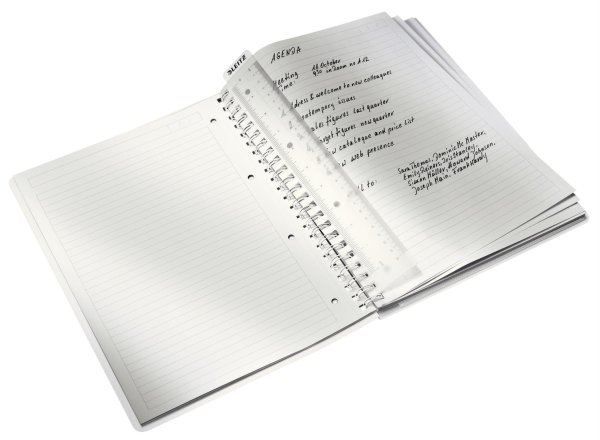 LEITZ
AGENDA
Meeting 18. October
Time: 9:30 in Room no A 12
address & welcome to new colleagues
contemporary issues
sales figures last quarter
target figures new quarter
new catalogue and price list
new web presence
to:
Sara Thomas, Dominic Mc Master,
Emily Steiners, Iris Stanley,
Simon Müller, Howard Johnson,
Joseph Main, Frank Hardy